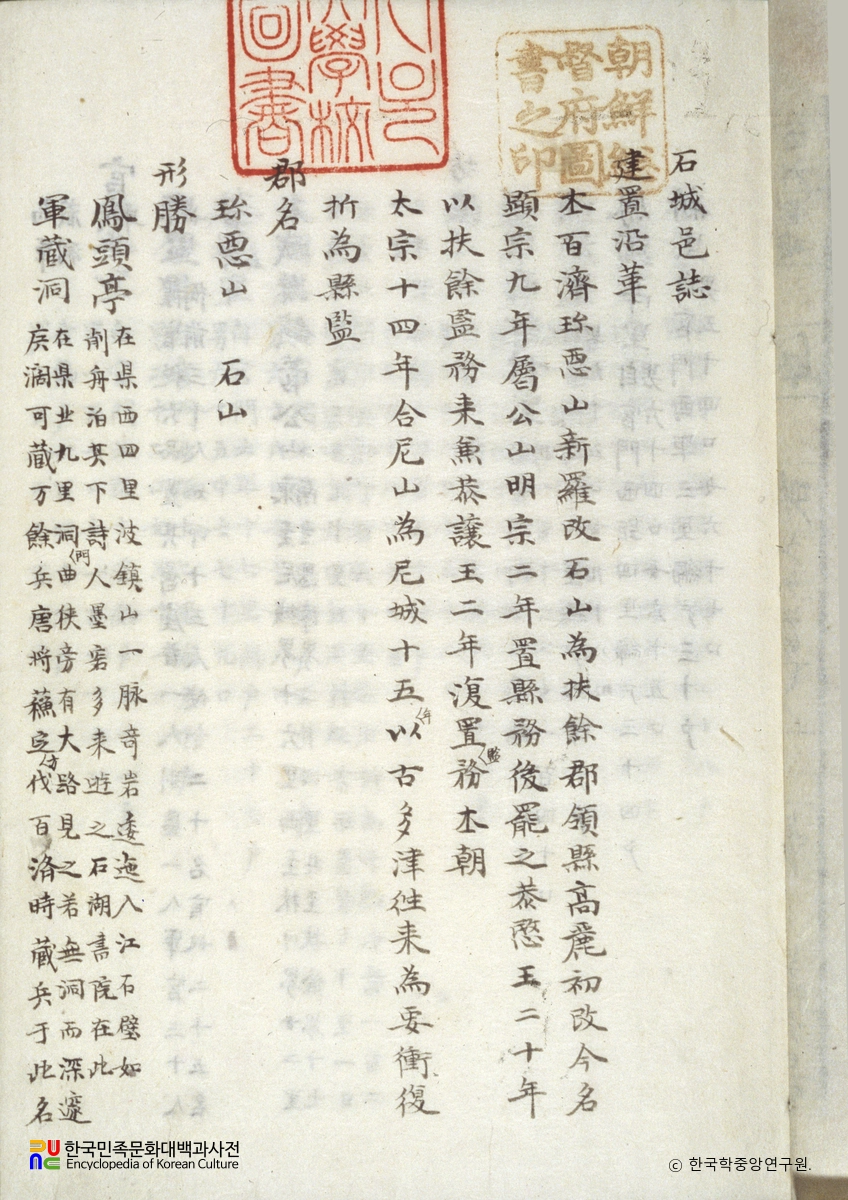 石城邑誌
建置沿革
本百濟珎惡山新羅改石山為扶餘郡領縣高麗初改今名
顯宗九年屬公山明宗二年置縣務後罷之恭愍王二十年
以扶餘監務来兼恭讓王二年復置監務本朝
太宗十四年合尼山為尼城十五年以古多津徃来為要衝復
折為縣監
郡名
珎惡山 石山
形勝
鳳頭亭 在県西四里波鎮山一脉竒岩逶迤入江石壁如
削舟泊其下詩人墨客多来遊之石湖書院在此
軍蔵洞 在県北九里洞門曲狭旁有大路見之若無洞而深邃
庆濶可蔵万餘兵唐将蘓定方伐百济時蔵兵于此名
朝鮮総
督府圖
書之印
學校
圖書
한국민족문화대백과사전
Encyclopedia of Korean Culture
© 한국학중앙연구원.